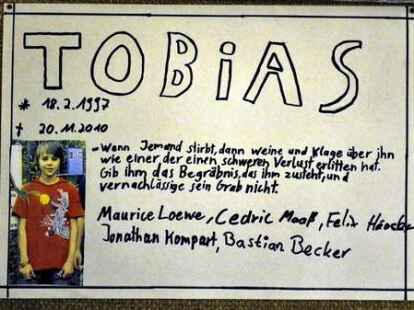 TOBiAS
* 18.2.1997
† 20.11.2010
- Wann Jemand stirbt, dann weine und Klage über ihn
wie einer, der einen schweren Verlust erlitten hat.
Gib ihm das Begräbnis, das ihm zusteht, und
vernachlässige sein Grab nicht.
Maurice Loewe, Cedric Maaß, Felix
Jonathan Kompart, Bastian Becker